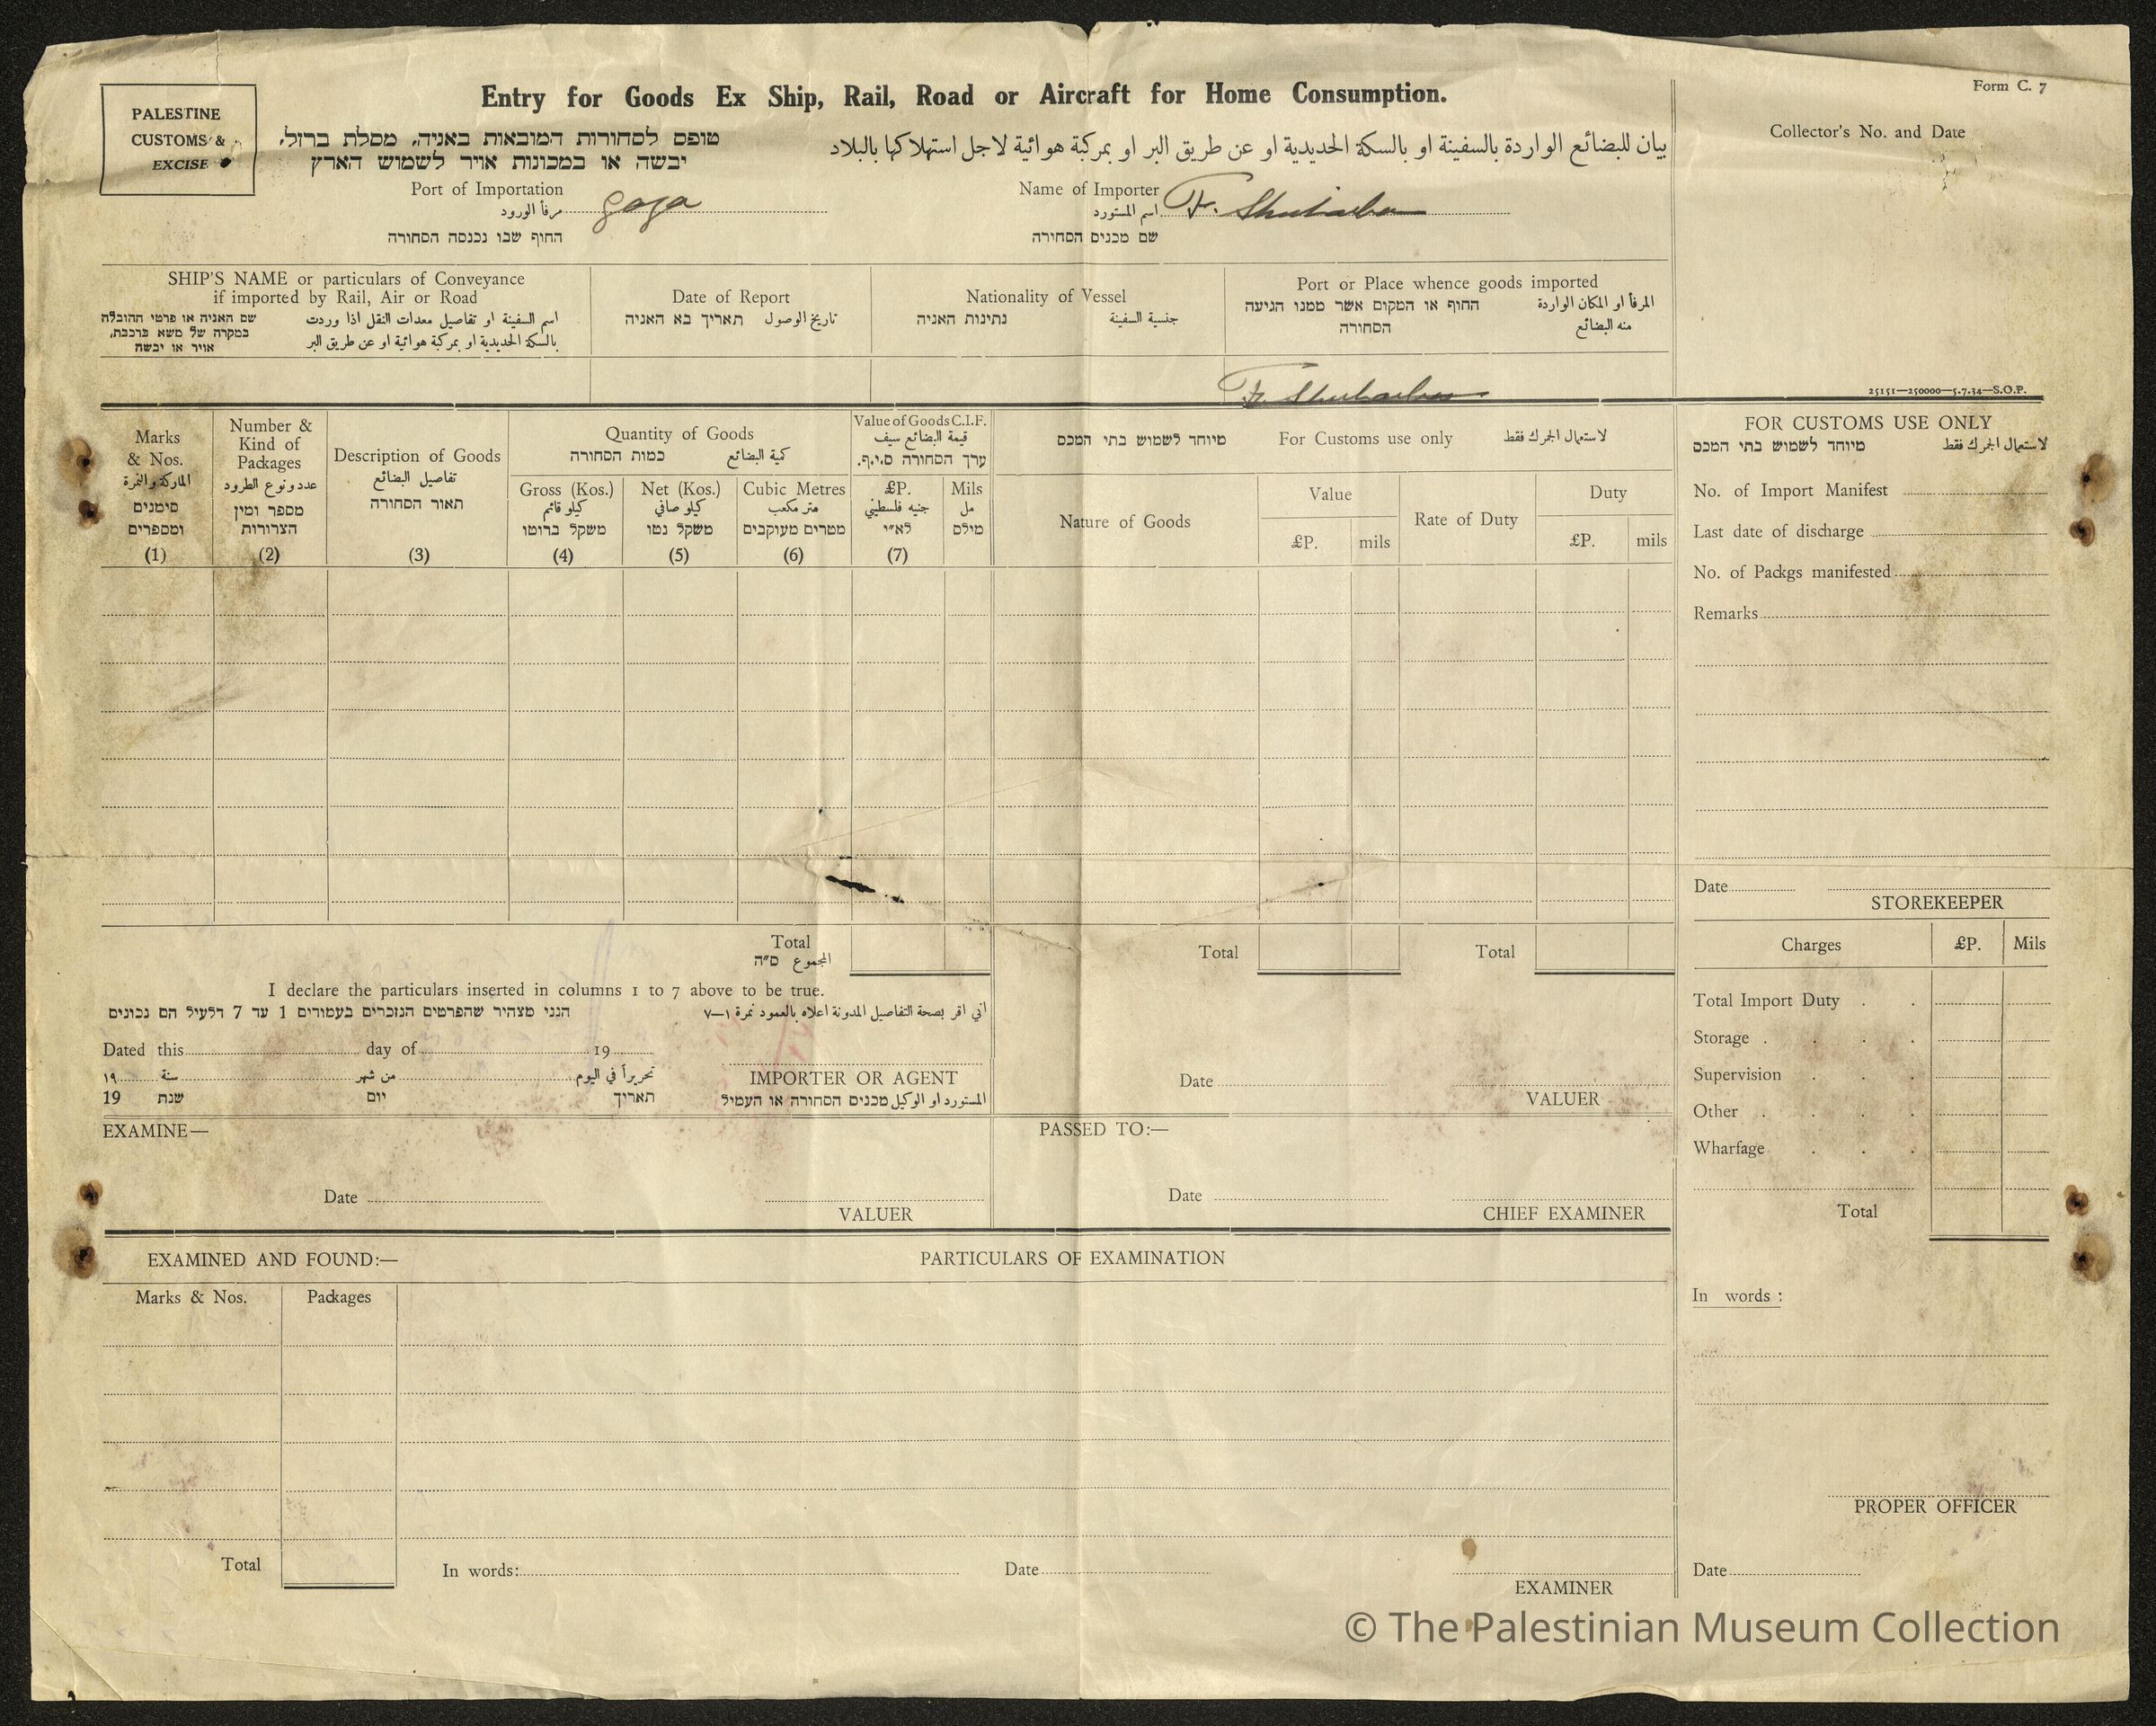 Form C. 7
PALESTINE
CUSTOMS &
EXCISE
Entry for Goods Ex Ship, Rail, Road or Aircraft for Home Consumption.
טופס לסחורות המובאות באניה, מסלת ברזל,
יבשה או במכונות אויר לשמוש הארץ
بيان للبضائع الواردة بالسفينة او بالسكة الحديدية او عن طريق البر او بمركبة هوائية لاجل استهلاكها بالبلاد
Collector's No. and Date
Port of Importation
مرفأ الورود
החוף שבו נכנסה הסחורה
gaza
Name of Importer
اسم المستورد
שם מכניס הסחורה
SHIP'S NAME or particulars of Conveyance
if imported by Rail, Air or Road
שם האניה או פרטי ההובלה
במקרה של משא ברכבת,
אויר או יבשה
اسم السفينة او تفاصيل معدات النقل اذا وردت
بالسكة الحديدية او بمركبة هوائية او عن طريق البر
Date of Report
תאריך בא האניה تاريخ الوصول
Nationality of Vessel
נתינות האניה جنسية السفينة
Port or Place whence goods imported
החוף או המקום אשר ממנו הגיעה
הסחורה
المرفأ او المكان الواردة
منه البضائع
25151—250000—5.7.34—S.O.P.
Marks
& Nos.
الماركة والنمرة
סימנים
ומספרים
(1)
Number &
Kind of
Packages
عدد ونوع الطرود
מספר ומין
הצרורות
(2)
Description of Goods
تفاصيل البضائع
תאור הסחורה
(3)
Quantity of Goods
כמות הסחורה كمية البضائع
Gross (Kos.)
كيلو قائم
משקל ברוטו
(4)
Net (Kos.)
كيلو صافي
משקל נטו
(5)
Cubic Metres
متر مكعب
מטרים מעוקבים
(6)
Value of Goods C.I.F.
قيمة البضائع سيف
ערך הסחורה ס.י.ף.
£P.
جنيه فلسطيني
לא"י
(7)
Mils
مل
מילס
מיוחד לשמוש בתי המכס For Customs use only لاستعمال الجمرك فقط
Nature of Goods
Value
£P. mils
Rate of Duty
Duty
£P. mils
FOR CUSTOMS USE ONLY
מיוחד לשמוש בתי המכס لاستعمال الجمرك فقط
No. of Import Manifest
Last date of discharge
No. of Packgs manifested
Remarks
Date
STOREKEEPER
Total
المجموع ס"ה
Total
Total
I declare the particulars inserted in columns 1 to 7 above to be true.
הנני מצהיר שהפרטים הנזכרים בעמודים 1 עד 7 דלעיל הם נכונים
اني اقر بصحة التفاصيل المدونة اعلاه بالعمود نمرة ١—٧
Dated this day of 19
تحريراً في اليوم من شهر سنة ١٩
תאריך יום שנת 19
IMPORTER OR AGENT
المستورد او الوكيل מכניס הסחורה או העמיל
Date
VALUER
Charges £P. Mils
Total Import Duty
Storage
Supervision
Other
Wharfage
Total
EXAMINE—
Date
VALUER
PASSED TO:—
Date
CHIEF EXAMINER
EXAMINED AND FOUND:—
PARTICULARS OF EXAMINATION
Marks & Nos. Packages
In words :
PROPER OFFICER
Date
Total
In words:
Date
EXAMINER
© The Palestinian Museum Collection